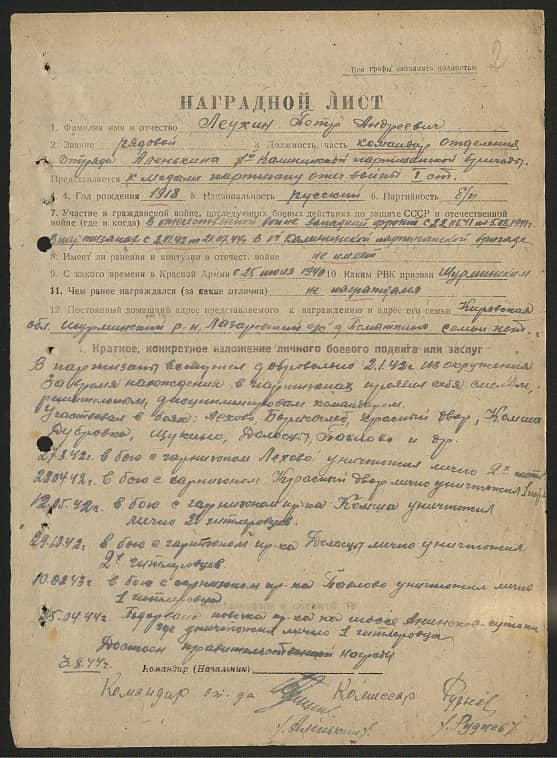 2
Все графы заполнять полностью
НАГРАДНОЙ ЛИСТ
1. Фамилия имя и отчество Леухин Петр Андреевич
2. Звание рядовой 3 Должность, часть командир отделения
отряда Аленькина 1й Калининской партизанской бригады.
Представляется к медали партизану отеч. войны I ст.
4. Год рождения 1918 5. Национальность русский 6. Партийность б/п
7. Участие в гражданской войне, последующих боевых действиях по защите СССР и отечественной
войне (где и когда) В отечественной войне Западный фронт с 22.06.41 по 5.08.1941г.
В партизанах с 2.01.42 по 21.07.44г. В 1й Калининской партизанской бригаде
8. Имеет ли ранения и контузии в отечест. войне не имеет
9. С какого времени в Красной Армии с 25 июля 1940 10 Каким РВК призван Шурминским
11. Чем ранее награждался (за какие отличия) не награждался
12. Постоянный домашний адрес представляемого к награждению и адрес его семьи Кировская
обл. Шурминский р-н, Лазаревский с/с д. семьи нет.
I. Краткое, конкретное изложение личного боевого подвига или заслуг
В партизаны вступил добровольно 2.1.42г из окружения
За время нахождения в партизанах проявил себя смелым,
решительным, дисциплинированным командиром.
Участвовал в боях: Лехово, Красный двор, Комша
Дубровка, Щукино, Павлово и др.
27.3.42г. в бою с гарнизоном Лехово уничтожил лично 2х
28.04.42г. в бою с гарнизоном Красный двор лично уничтожил
12.05.42г. в бою с гарнизоном пр-ка Комша уничтожил
лично 2х гитлеровцев.
29.10.42г. в бою с гарнизоном пр-ка лично уничтожил
2х гитлеровцев
10.02.43г. в бою с гарнизоном пр-ка Павлово уничтожил лично
1 гитлеровца
25.04.44г. Подорвана повозка пр-ка на шоссе
где уничтожил лично 1 гитлеровца
Достоин правительственной награды
3.8.44г. Командир (Начальник)
Командир от-да Комиссар
/Аленькин/